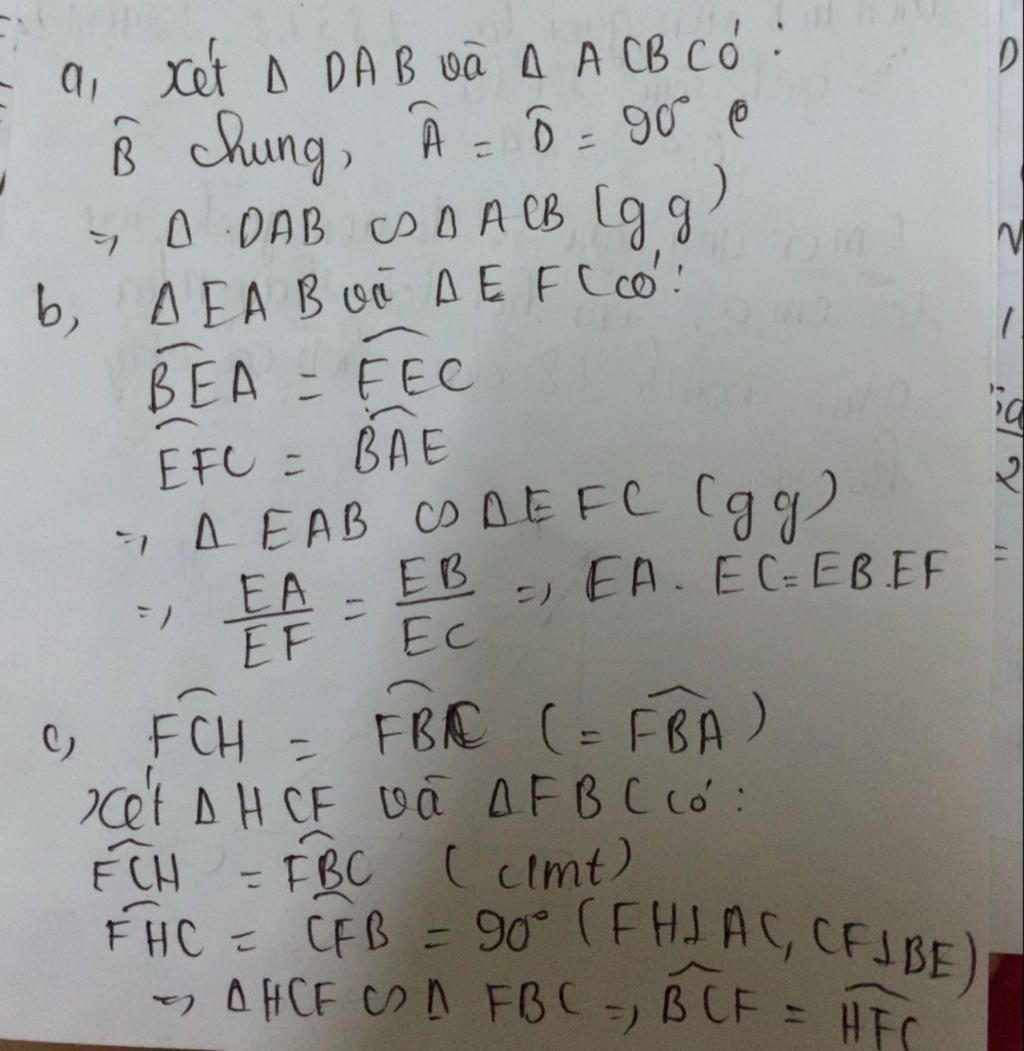 a, Xét Δ DAB và Δ ACB có :
B̂ chung, Â = D̂ = 90°
=> Δ DAB ∽ Δ ACB (g g)
b, Δ EAB và Δ EFC có :
BÊA = FÊC
EFC = BAE
=> Δ EAB ∽ Δ EFC (g g)
=> EA/EF = EB/EC => EA . EC = EB.EF
c, FCH = FBC (= FBA)
Xét Δ HCF và Δ FBC có :
FCH = FBC (cmt)
FHC = CFB = 90° (FH⊥AC, CF⊥BE)
=> Δ HCF ∽ Δ FBC => BCF = HFC